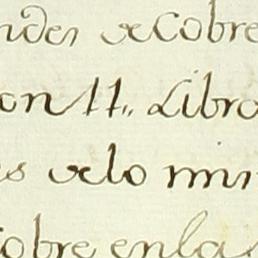 ndes de Cobre
on 11,, Libro
s delo min
obre enlas